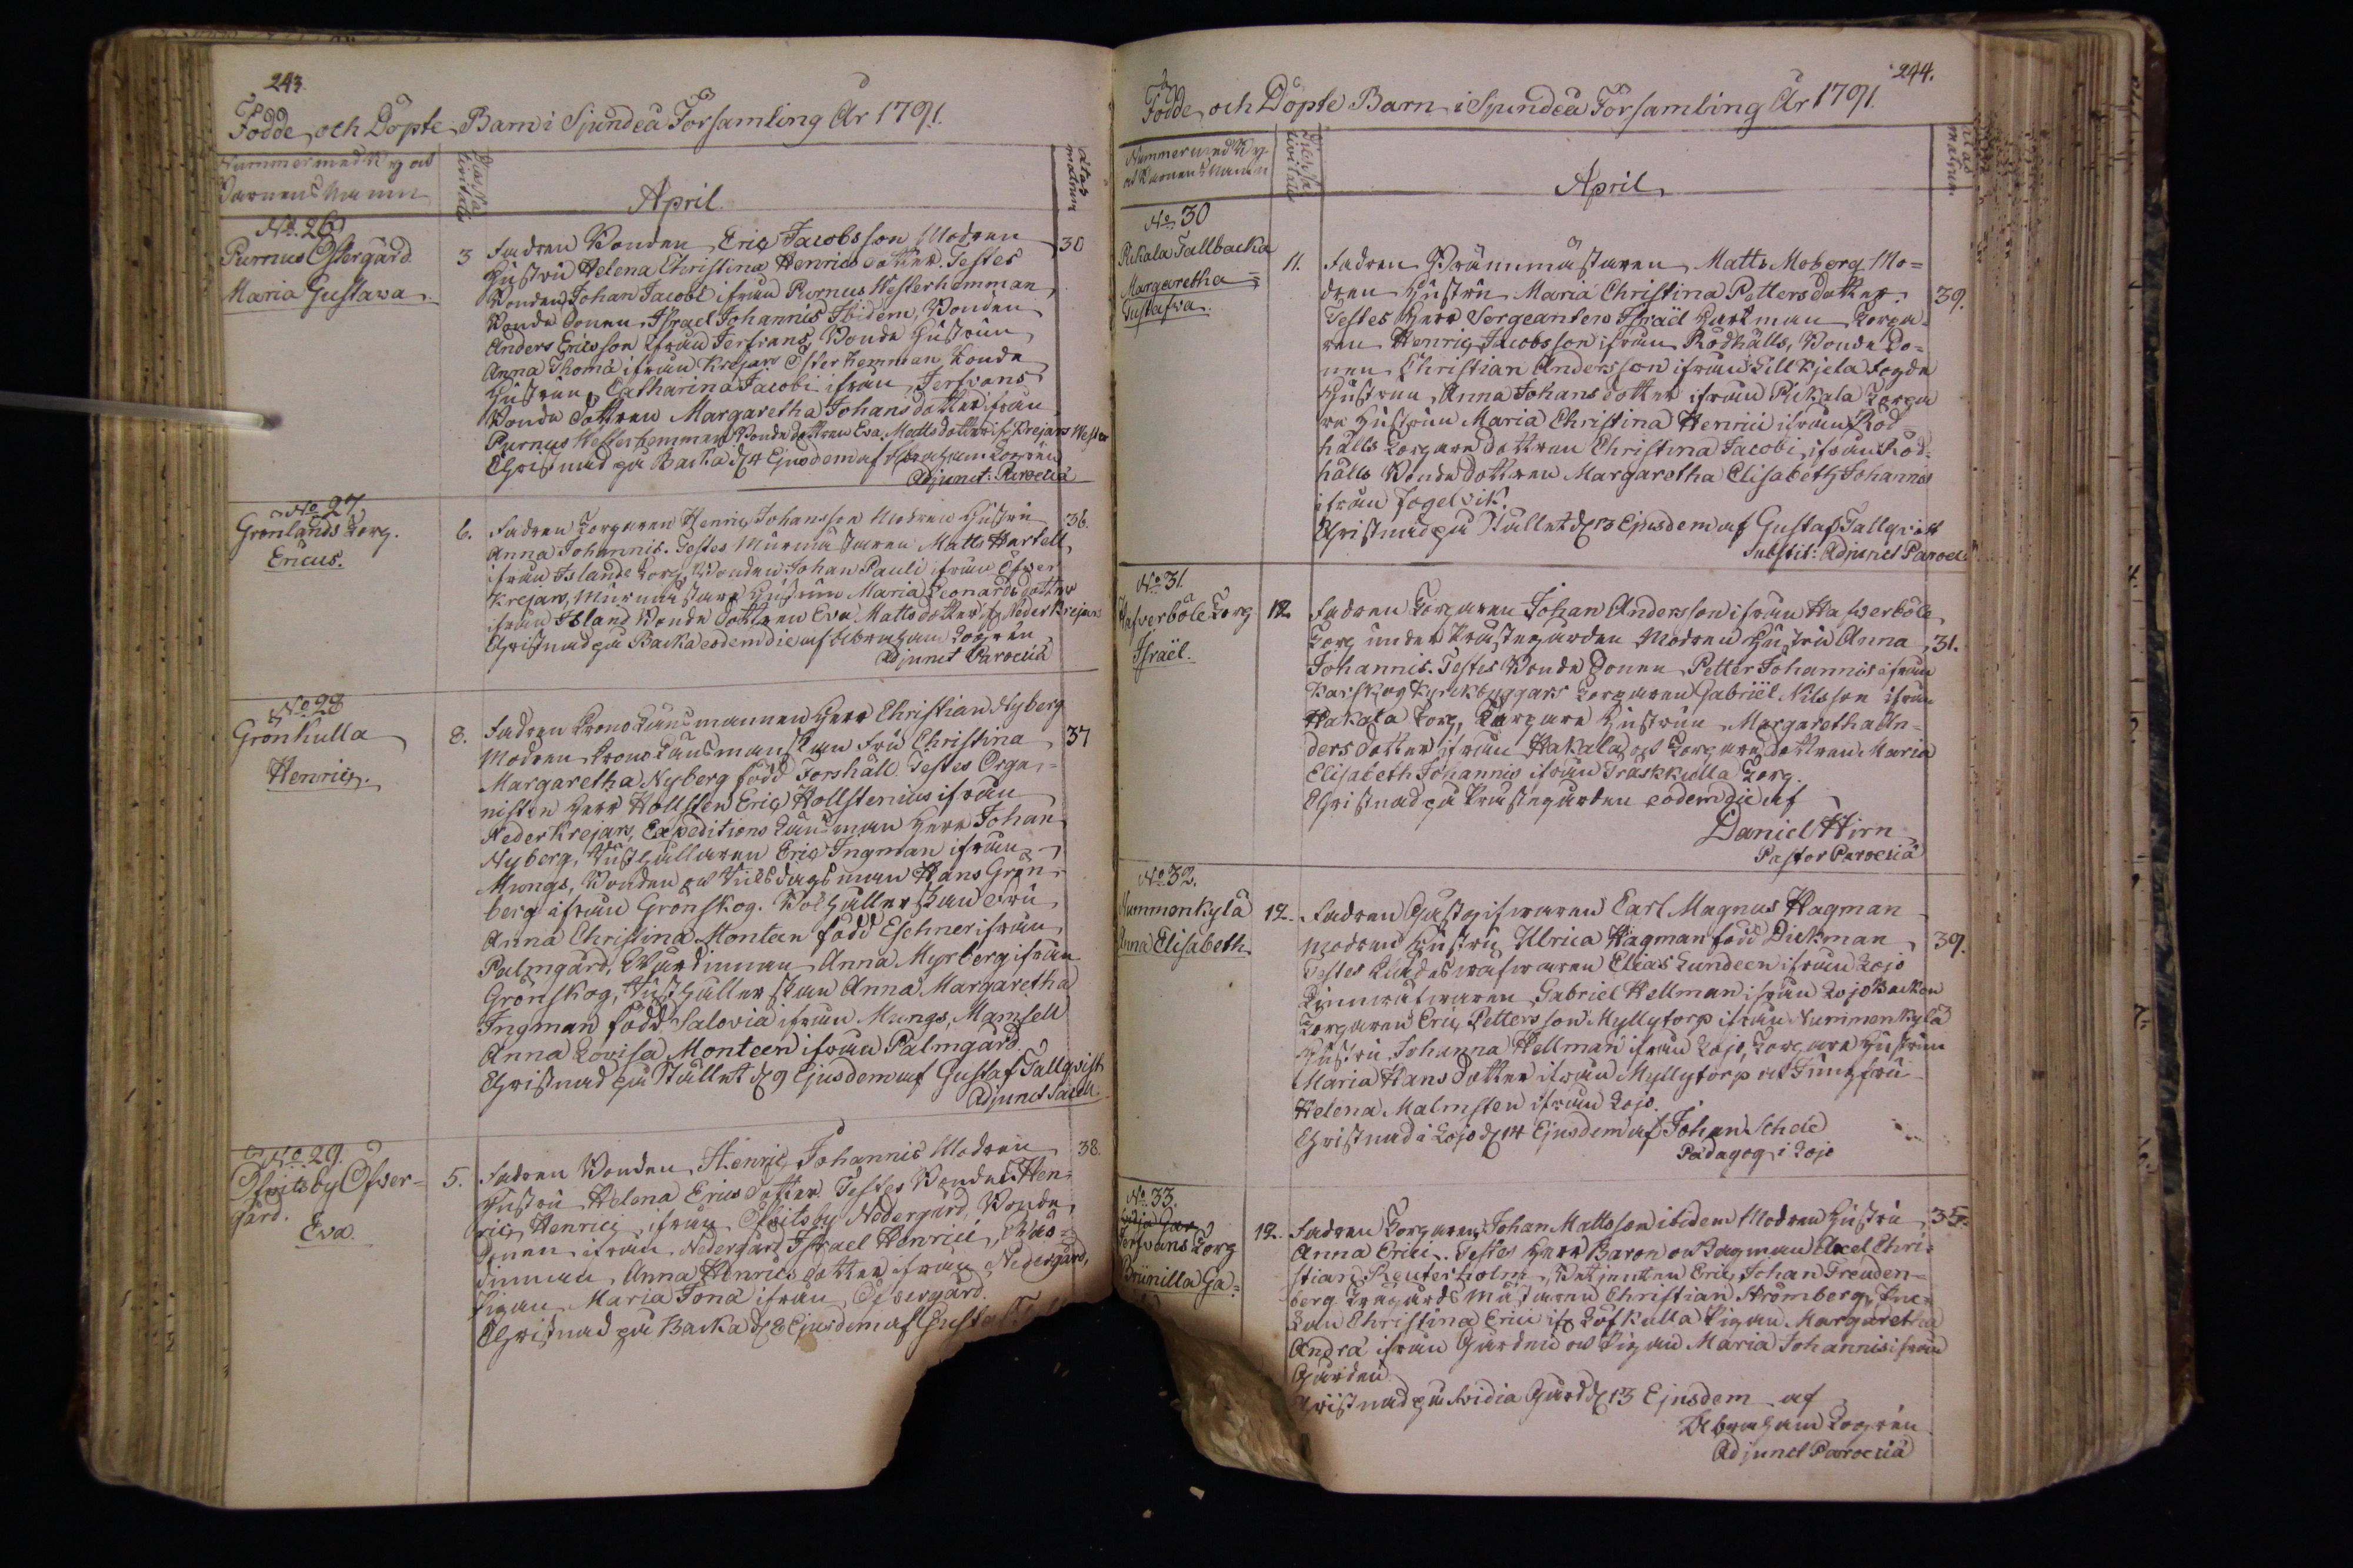 243.
Födde och Döpte Barn i Sjundeå Församling År 1791.
Nummer med By och
Barnens Namn
April
Ætas
matrum
No. 26
Purnus Östergård
Maria Gustava
3
Fadren Bonden Eric Jacobsson Modren
30
Hustru Helena Christina Henricsdotter. Testes
Bonden Johan Jacobi ifrån Purnus Westerhemman
Bonde Sonen Israel Johannis Ibidem, Bonden
Anders Ericsson ifrån Jerfvans, Bonde Hustrun
Anna Thomæ ifrån Krejans Österhemman Bonde
Hustrun Catharina Jacobi ifrån Jerfvans
Bonde Dottren Margaretha Johansdotter ifrån
Purnus Westerhemman Bonde dottren Eva Mattsdotter if. Krejans Wester
Christnad på Backa d. 4 Ejusdem af Abraham Logrén
Adjunct: Paroeciæ
No 27.
Grönlands Torp.
Ericus.
6.
Fadren Torparen Henric Johansson Modren Hustru
36.
Anna Johannis. Testes Murmästaren Matts Hartell
ifrån Islands Torp, Bonden Johan Pauli ifrån Öfver
Krejans, Murmästare Hustrun Maria Leonardsdotter
ifrån Island Bonde Dottren Eva Mattsdotter if. Neder Krejans
Christnad på Backa eodem die af Abraham Logrén
Adjunct Paroeciæ
No 28
Grönkulla
Henric.
8.
Fadren Crono Länsmannen Herr Christian Nyberg
37
Modren Crono Länsmanskan Fru Christina
Margaretha Nyberg född Forshæll. Testes Orga-
nisten Herr Hollsten Eric Hollstenius ifrån
Neder Krejans, Expeditions Länsman Herr Johan
Nyberg, Rusthållaren Eric Ingman ifrån
Mungs, Bonden och Riksdagsman Hans Grön-
berg ifrån Grönskog. Bohållerskan Fru
Anna Christina Monteen född Eschner ifrån
Palmgård, Värdinnan Anna Myrberg ifrån
Grönskog, Rusthållerskan Anna Margaretha
Ingman född Salovia ifrån Mungs, Mamsell
Anna Lovisa Monteen ifrån Palmgård.
Christnad på Stället d. 9 Ejusdem af Gustaf Tallqvist
Adjunct Sacell.
No 29.
Öfvitsby Öfver-
gård.
Eva.
5.
Fadren Bonden Henric Johannis Modren
38.
Hustru Helena Ericsdotter. Testes Bonden Hen-
ric Henrici ifrån Öfvitsby Nedergård, Bonde
Sonen ifrån Nedergård Israel Henrici, Vär-
dinnan Anna Henricsdotter ifrån Nedergård,
Pigan Maria Jonæ ifrån Öfvergård.
Christnad på Backa d. 8 Ejusdem af Gustaf
244.
Födde och Döpte Barn i Sjundeå Församling År 1791.
Nummer med By
och Barnens Namn
April
Ætas
matrum
No. 30
Pickala Tallbacka
Margaretha
Gustafva.
11.
Fadren Brännmästaren Matts Moberg Mo-
dren Hustru Maria Christina Pettersdotter.
39.
Testes Herr Sergeanten Israël Hartman Torpa-
ren Henric Jacobsson ifrån Rödhälls, Bonde So-
nen Christian Andersson ifrån Lillkjela Fogde
Hustrun Anna Johansdotter ifrån Pickala Torpa
re Hustrun Maria Christina Henrici ifrån Röd-
hälls Torpare dottren Christina Jacobi ifrån Röd-
hälls Bonde dottren Margaretha Elisabeth Johannis
ifrån Fogelvik.
Christnad på Stället d. 13 Ejusdem af Gustaf Tallqvist
Substit: Adjunct Paroec:
No 31.
Hafverböle Torp
Israël.
12
Fadren Torparen Johan Andersson ifrån Hafverböle
Torp under Prästegården Modren Hustru Anna
31.
Johannis. Testes Bonde Sonen Petter Johannis ifrån
Karskog Kyrkbyggars Torparen Gabriël Nilsson ifrån
Hakala Torp, Torpare Hustrun Margaretha An-
ders dotter ifrån Hakala och Torpare dottren Maria
Elisabeth Johannis ifrån Träskkulla Torp.
Christnad på Prästegården eodem die af
Daniel Hirn
Pastor Paroeciæ
No 32.
Nummenkylä
Anna Elisabeth
12.
Fadren Gästgifvaren Carl Magnus Hagman
Modren Hustru Ulrica Hagman född Dickman
39.
Testes Elias Lundeen ifrån Lojo
Gabriel Hellman ifrån Lojo Backen
Torparen Eric Pettersson Myllytorp ifrån Nummenkylä
Hustru Johanna Hellman ifrån Lojo, Torpare Hustrun
Maria Hansdotter ifrån Myllytorp och Jungfru
Helena Malmsten ifrån Lojo.
Christnad i Lojo d. 14 Ejusdem af Johan Schele
Pædagog i Lojo
No. 33.
Jerfvans Torp
Brünilla Ga-
12.
Fadren Torparen Johan Mattsson ibidem Modren Hustru
35.
Anna Erici. Testes Herr Baron och Vagman Axel Chri-
stian Reuterholm, Betjenten Eric Johan Freuden-
berg Trägårds Mästaren Christian Strömberg,
Christina Erici if. Löfkulla Pigan Margaretha
Andræ ifrån Gården och Pigan Maria Johannis ifrån
Gården
Christnad på Svidja Gård d. 13 Ejusdem af
Abraham Logrén
Adjunct Paroeciæ